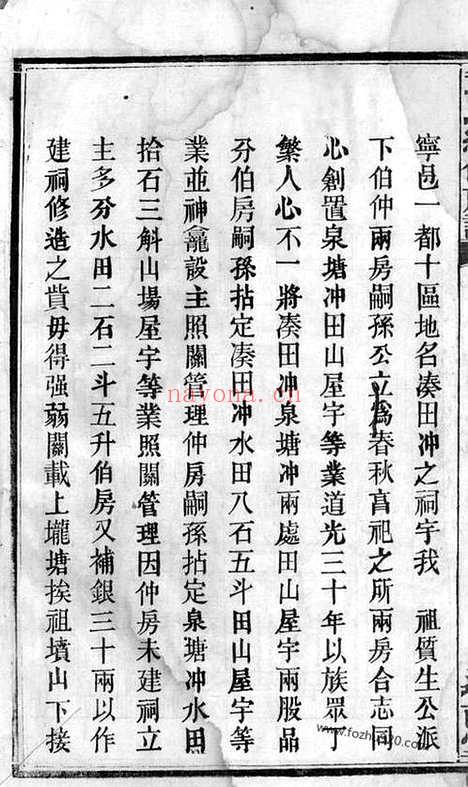 寧邑一都十區地名湊田冲之祠宇我　祖質生公派
下伯仲兩房嗣孫公立爲春秋亯祀之所兩房合志同
心創置泉塘冲田山屋宇等業道光三十年以族眾丁
繁人心不一將湊田冲泉塘冲兩處田山屋宇兩股品
分伯房嗣孫拈定湊田冲水田八石五斗田山屋宇等
業並神龕設主照關管理仲房嗣孫拈定泉塘冲水田
拾石三斛山塲屋宇等業照關管理因仲房未建祠立
主多分水田二石二斗五升伯房又補銀三十兩以作
建祠修造之貲毋得强弱關載上壠塘挨祖墳山下接
nayona.cn
www.fozhu920.com